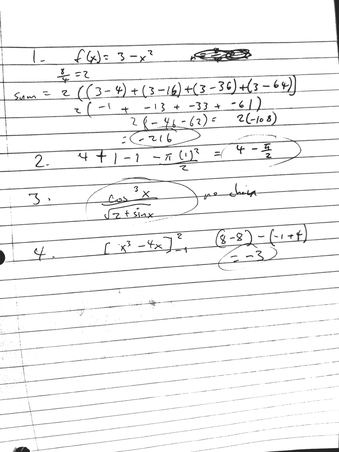 1. f(x) = 3 - x²
8/4 = 2
Sum = 2 ((3-4) + (3-16) + (3-36) + (3-64))
2 (-1 + -13 + -33 + -61)
2 (-46-62) = 2(-108)
= -216
2. 4 + 1 - 1 - π(1)²/2 = 4 - π/2
3. cos³x/√(2+sinx) no chain
4. [x³ - 4x]²₋₁ (8-8) - (-1+4)
= -3